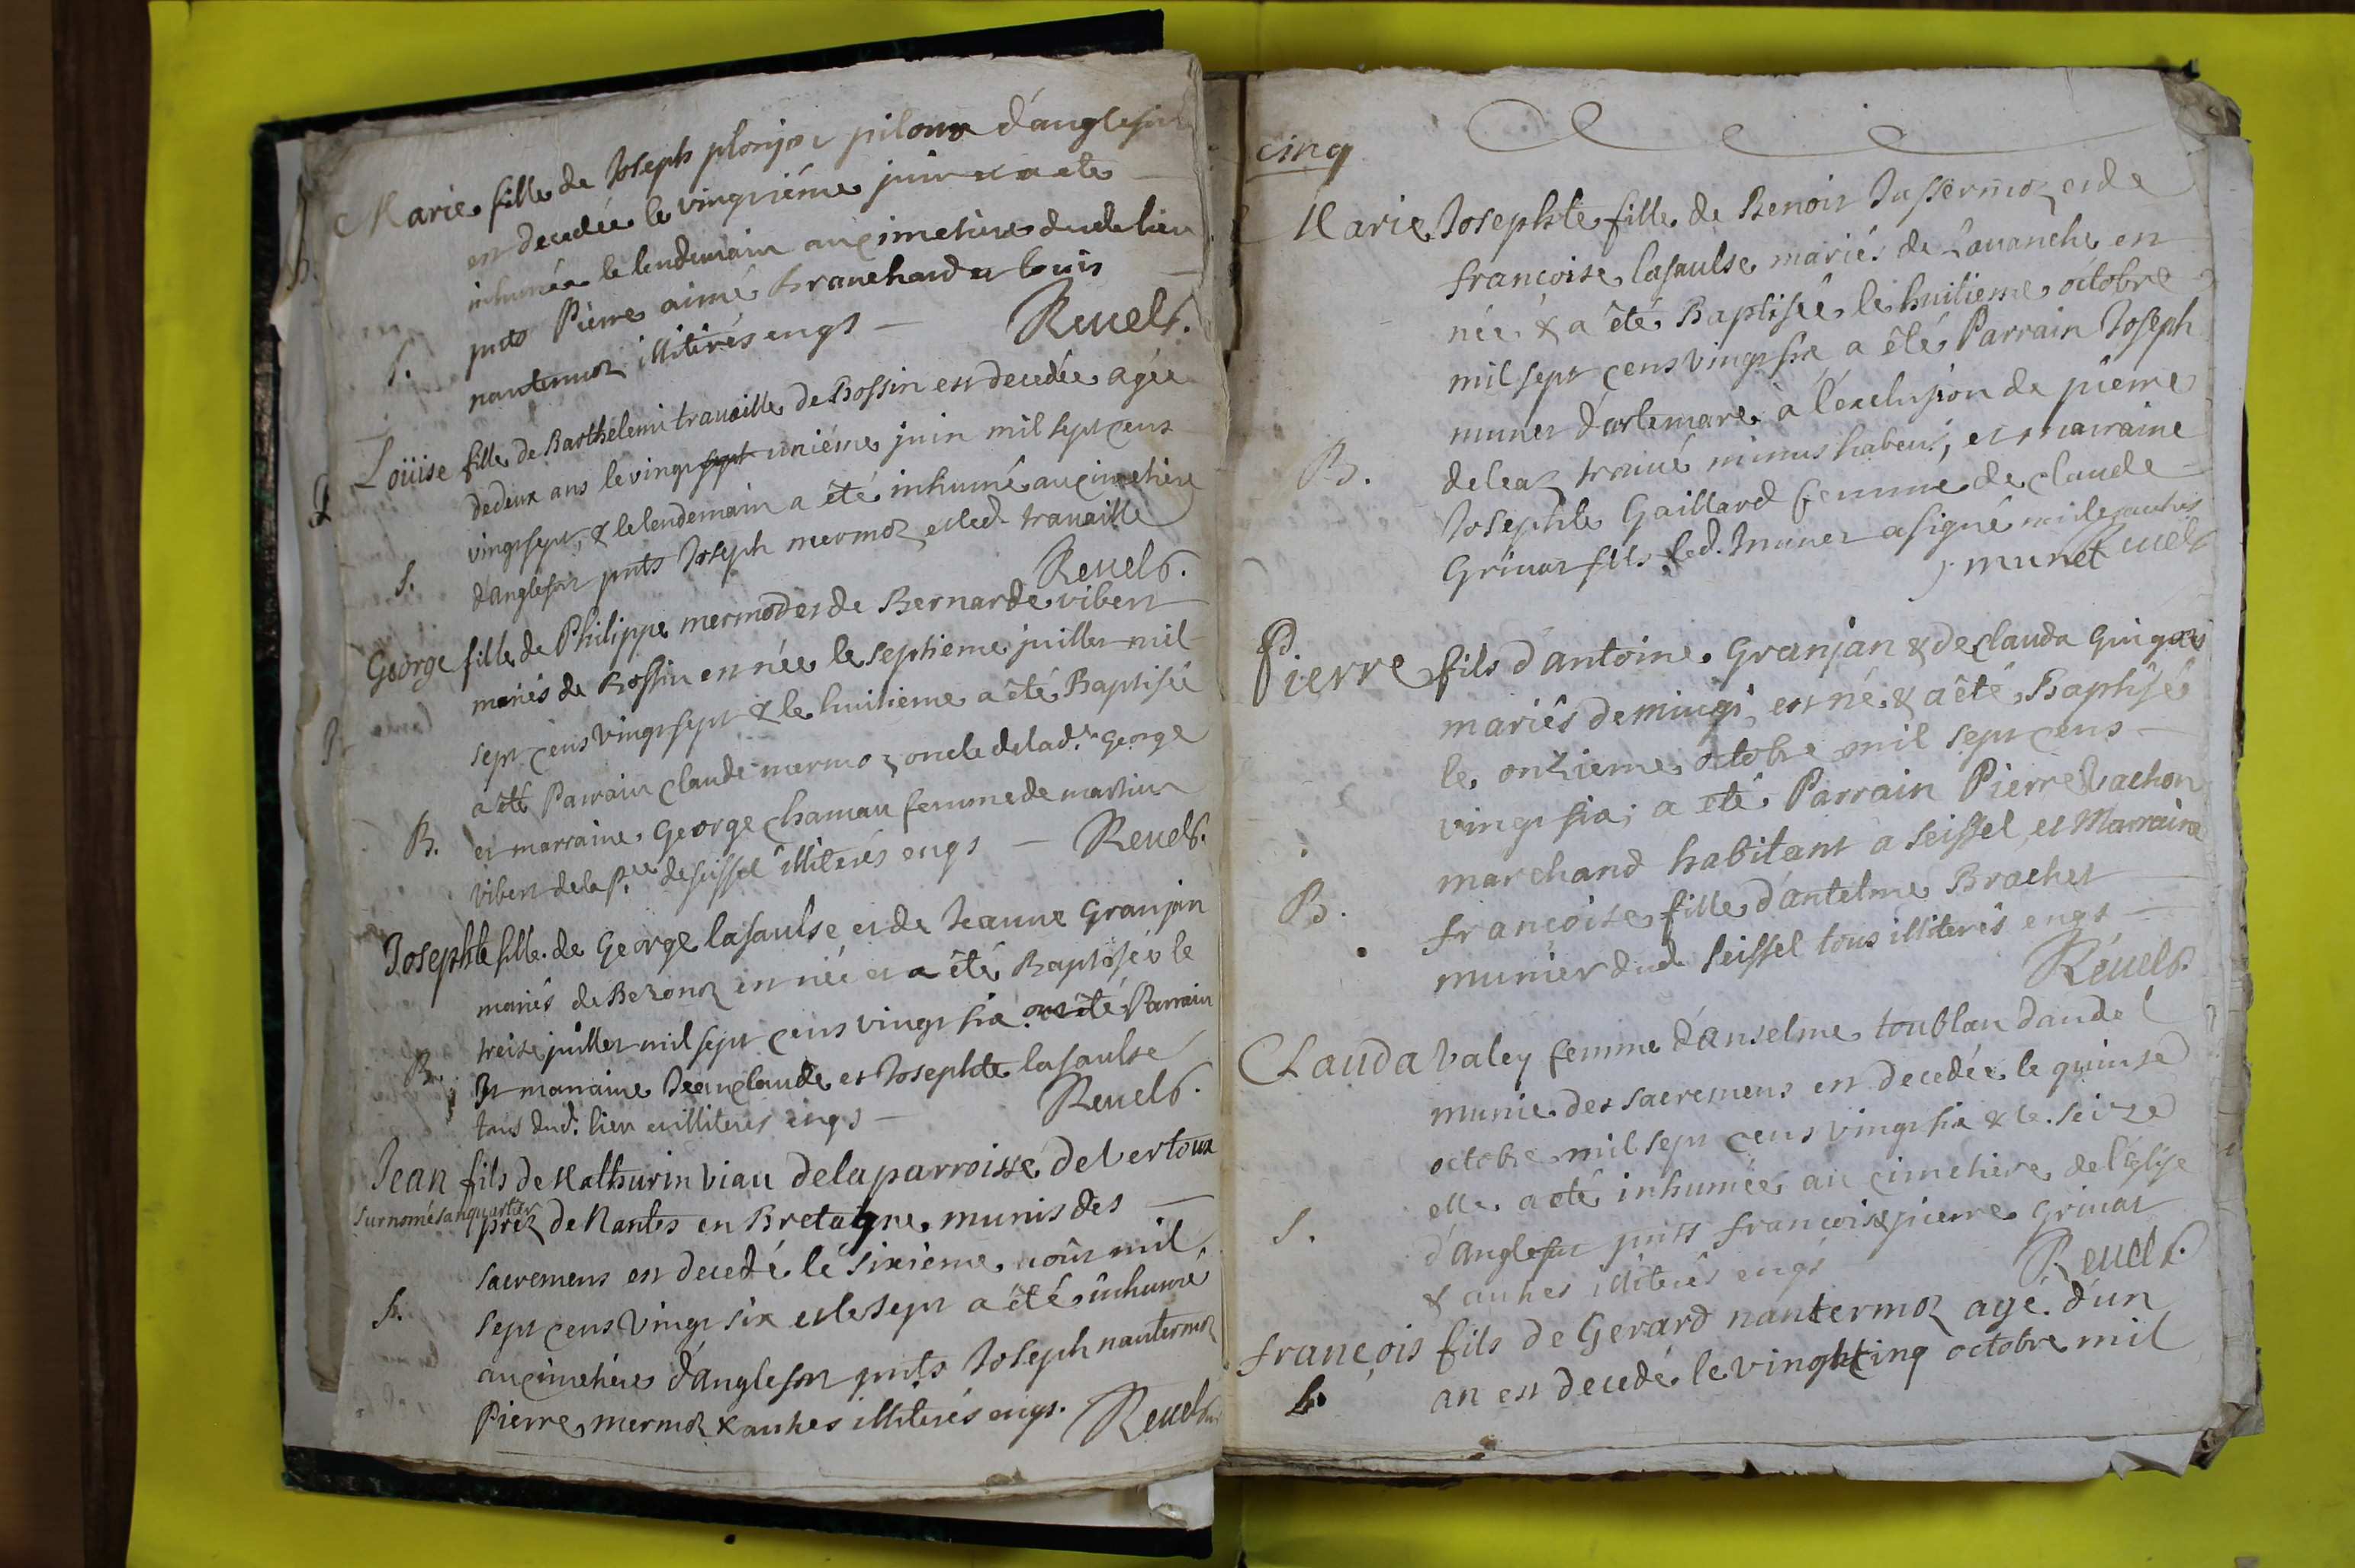 Marie fille de Joseph plonjon pilous d'anglefort
est decedée le vingtiéme juin & a ete
inhumée le lendemain au cimetiere dude lieu
S. pnts Pierre aimé branchard et louis
nantermoz illiterés enqs — Revel c.
Loüise fille de Barthélemi travaille de Bossin est decedée agée
de deux ans le vingt uniéme juin mil sept cens
vingt sept, & le lendemain a été inhumé au cimetiere
S. d'anglefort pnts Joseph mermoz et led. travaille
Revel c.
George fille de Philippe mermod et de Bernarde vibert
mariés de Bossin est née le septieme juillet mil
sept cens vingt sept & le huitieme a été Baptisée
a été Parrain Claude mermoz oncle de lad.e George
B. et marraine George chamau femme de martin
vibert de la p.sse de seissel illiterés enqs — Revel c.
Josephte fille de George lasaulse et de Jeanne Granjan
mariés de Bezonz est née et a été Baptisée le
treise juillet mil sept cens vingt six ont été Parrain
B. et marraine Jean claude et Josephte lasaulse
tous dud. lieu et illiterés enqs — Revel c.
Jean fils de Mathurin Viau de la parroisse de Vertoux
surnomé sanquartier
préz de Nantes en Bretagne, munis des
sacremens est decedé le sixieme août mil
S. sept cens vingt six et le sept a été inhumé
au cimetiere d'anglefort pnts Joseph nantermoz
Pierre mermoz & autres illiterés enqs. Revel c.
cinq
Marie Josephte fille de Benoit Jussermoz et de
françoise lasaulse mariés de Lavanche est
née & a été Baptisée le huitieme octobre
mil sept cens vingt six a été Parrain Joseph
munet d'artemare à l'exclusion de pierre
B. deleaz trouvé minus habens, et marraine
Josephte Gaillard femme de claude
Grinat fils led. munet a signé ni les autres
j. munet Revel c.
Pierre fils d'antoine Granjan & de clauda
mariés de mingi, est né & a été Baptisé
le onzieme octobre mil sept cens
vingt six; a été Parrain Pierre Vachon
marchand habitant a seissel et Marraine
B. françoise fille d'antelme Brachet
munier dud. seissel tous illiterés enqs —
Révelc.
Clauda Valey femme d'anselme toublan daude
munie des sacremens est decedée le quinse
octobre mil sept cens vingt six & le seize
elle a été inhumée au cimetiere de l'Église
S. d'anglefort pnts françois & pierre Grinat
& autres illiterés enqs Revel c.
françois fils de Gerard nantermoz agé d'un
an est decedé le vingt cinq octobre mil